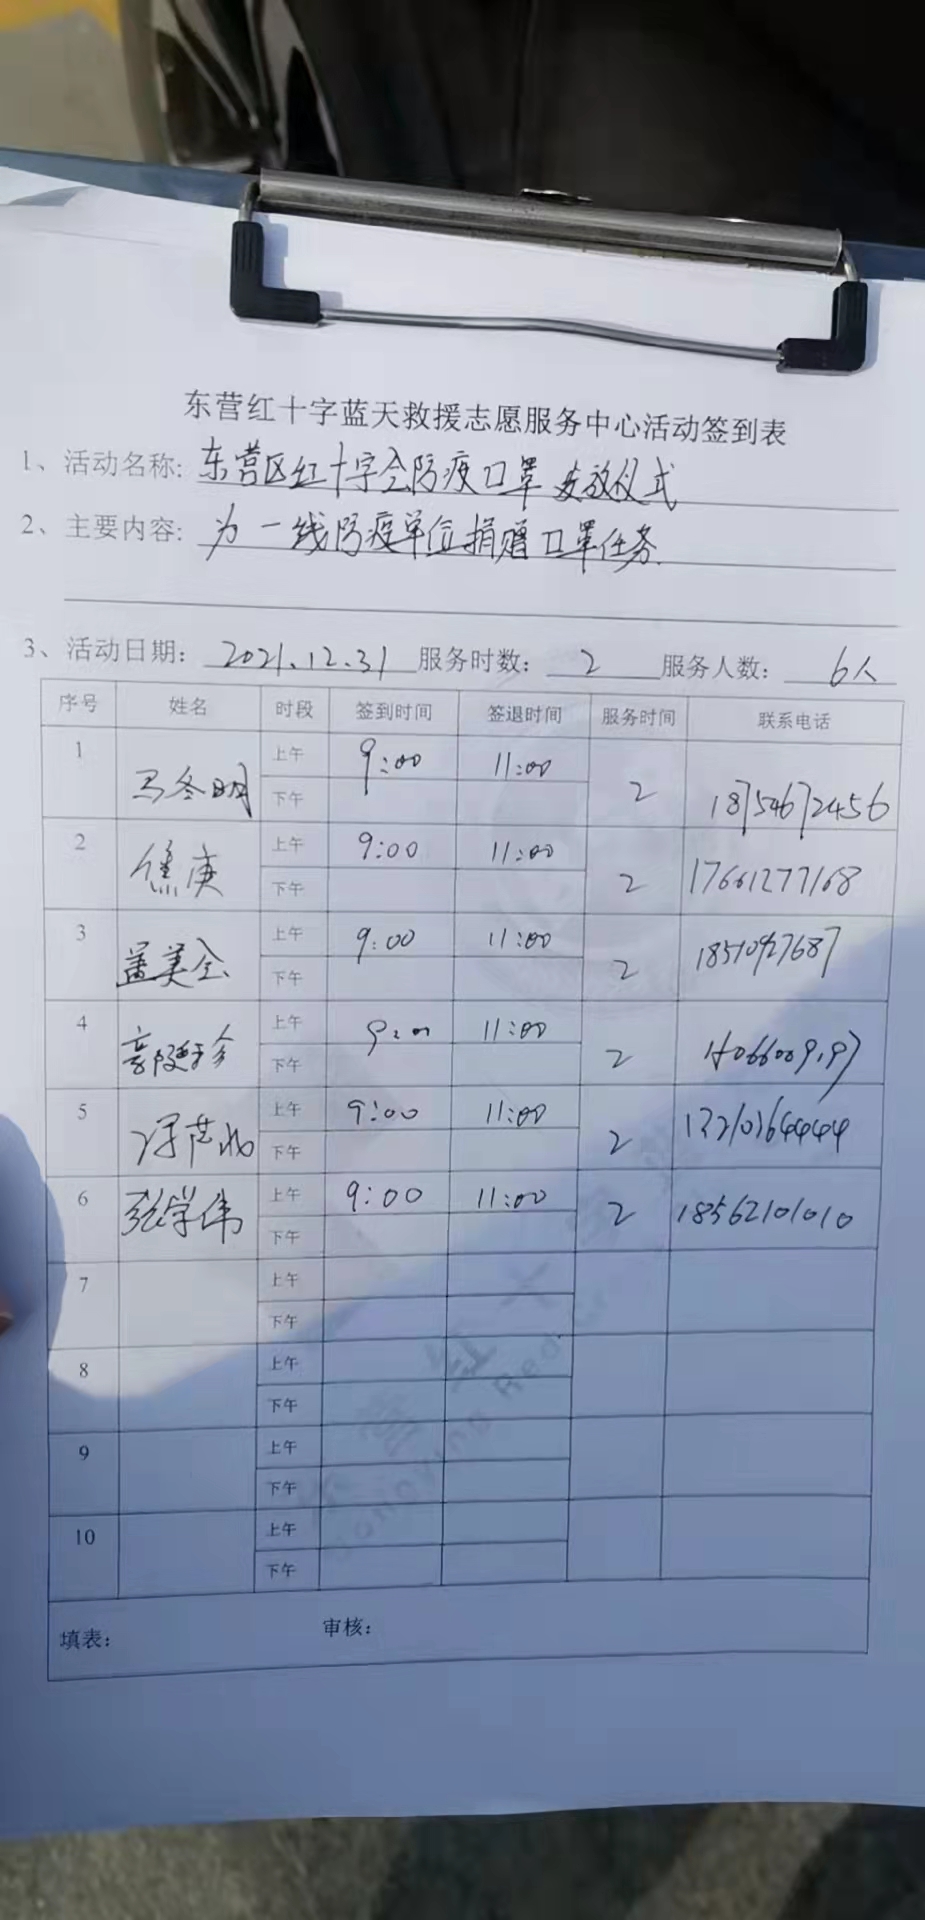 东营红十字蓝天救援志愿服务中心活动签到表
1、活动名称: 东营区红十字会防疫口罩发放仪式
2、主要内容: 为一线防疫单位捐赠口罩任务.
3、活动日期: 2021.12.31 服务时数: 2 服务人数: 6人
序号 姓名 时段 签到时间 签退时间 服务时间 联系电话
1 马冬明 上午 9:00 11:00 2 18754672456
下午
2 焦庚 上午 9:00 11:00 2 17661277168
下午
3 盖美全 上午 9:00 11:00 2
下午
4 上午 9:00 11:00 2
下午
5 上午 9:00 11:00 2
下午
6 张学伟 上午 9:00 11:00 2 18562101010
下午
7 上午
下午
8 上午
下午
9 上午
下午
10 上午
下午
填表: 审核: